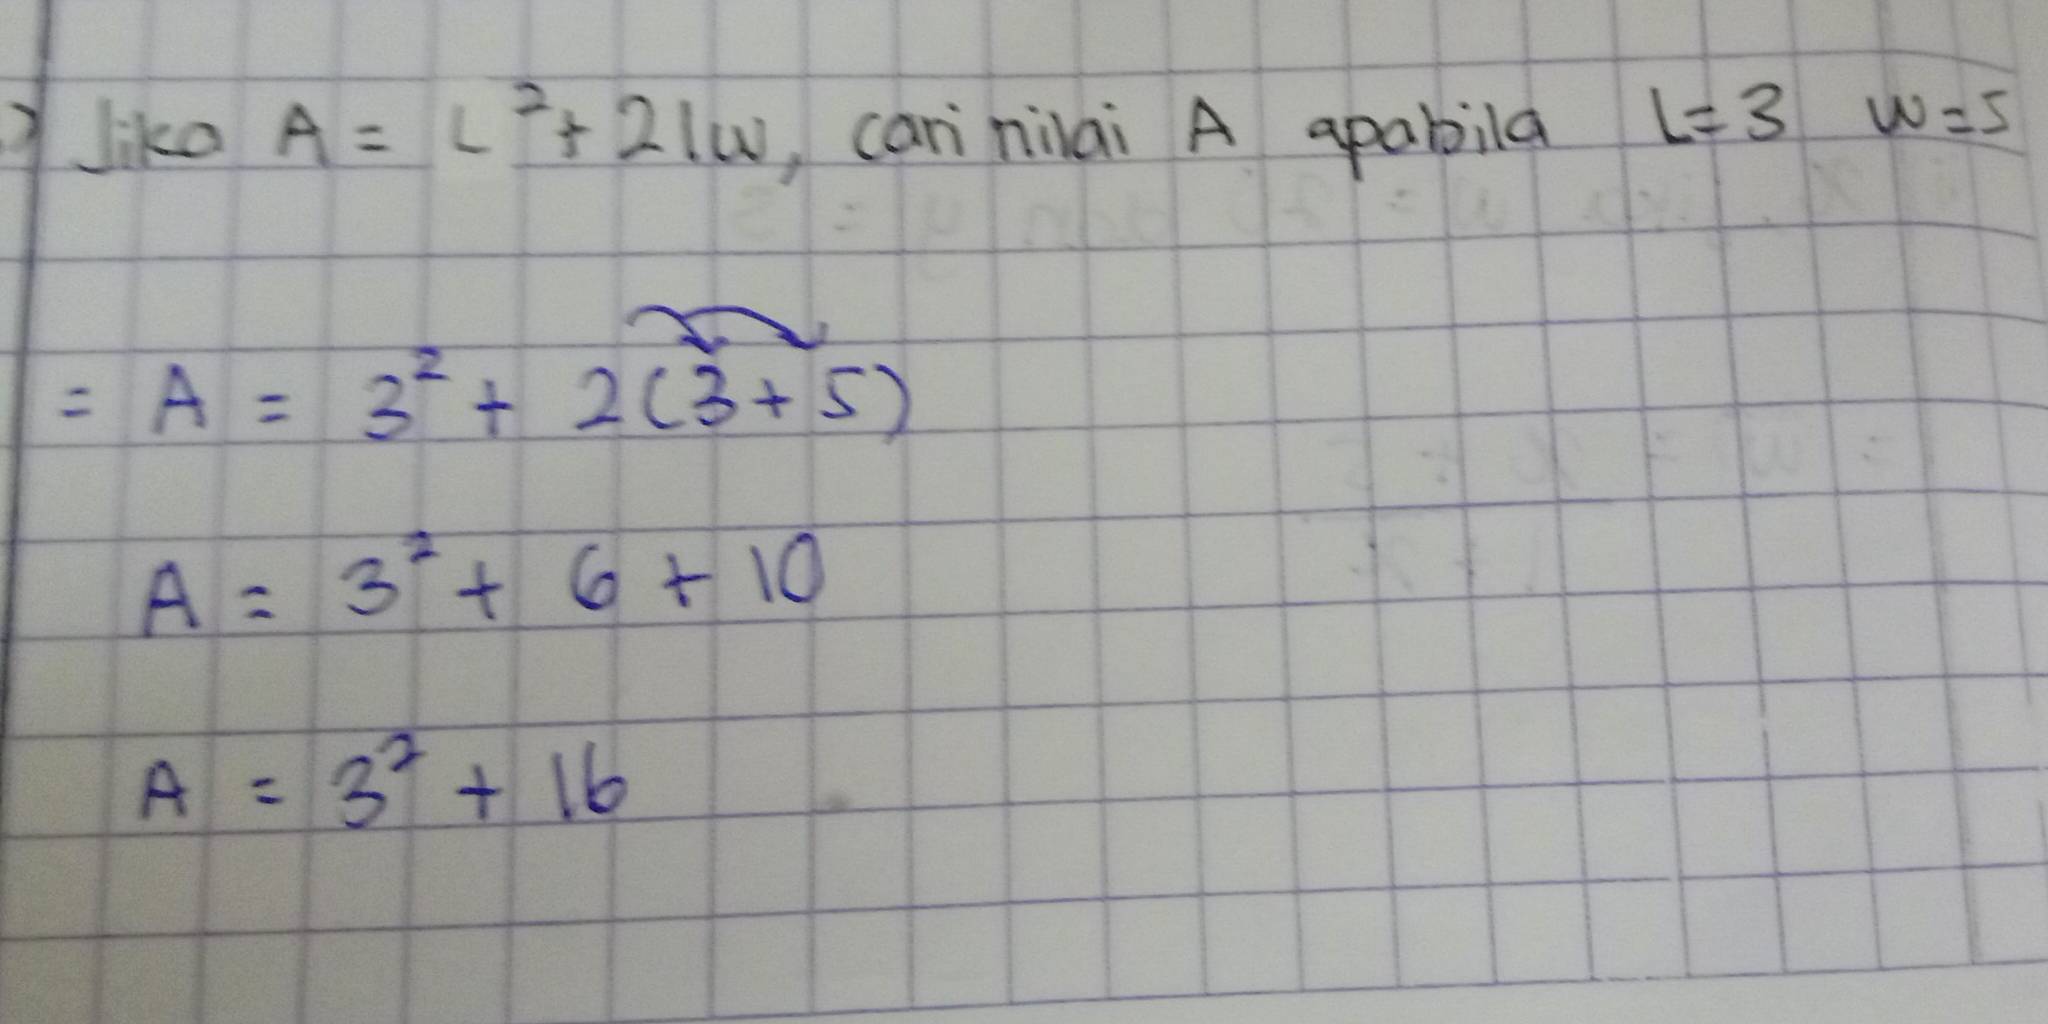 Jika A = L² + 2lw, cari nilai A apabila l=3 w=5
= A = 3² + 2(3+5)
A = 3² + 6 + 10
A = 3² + 16